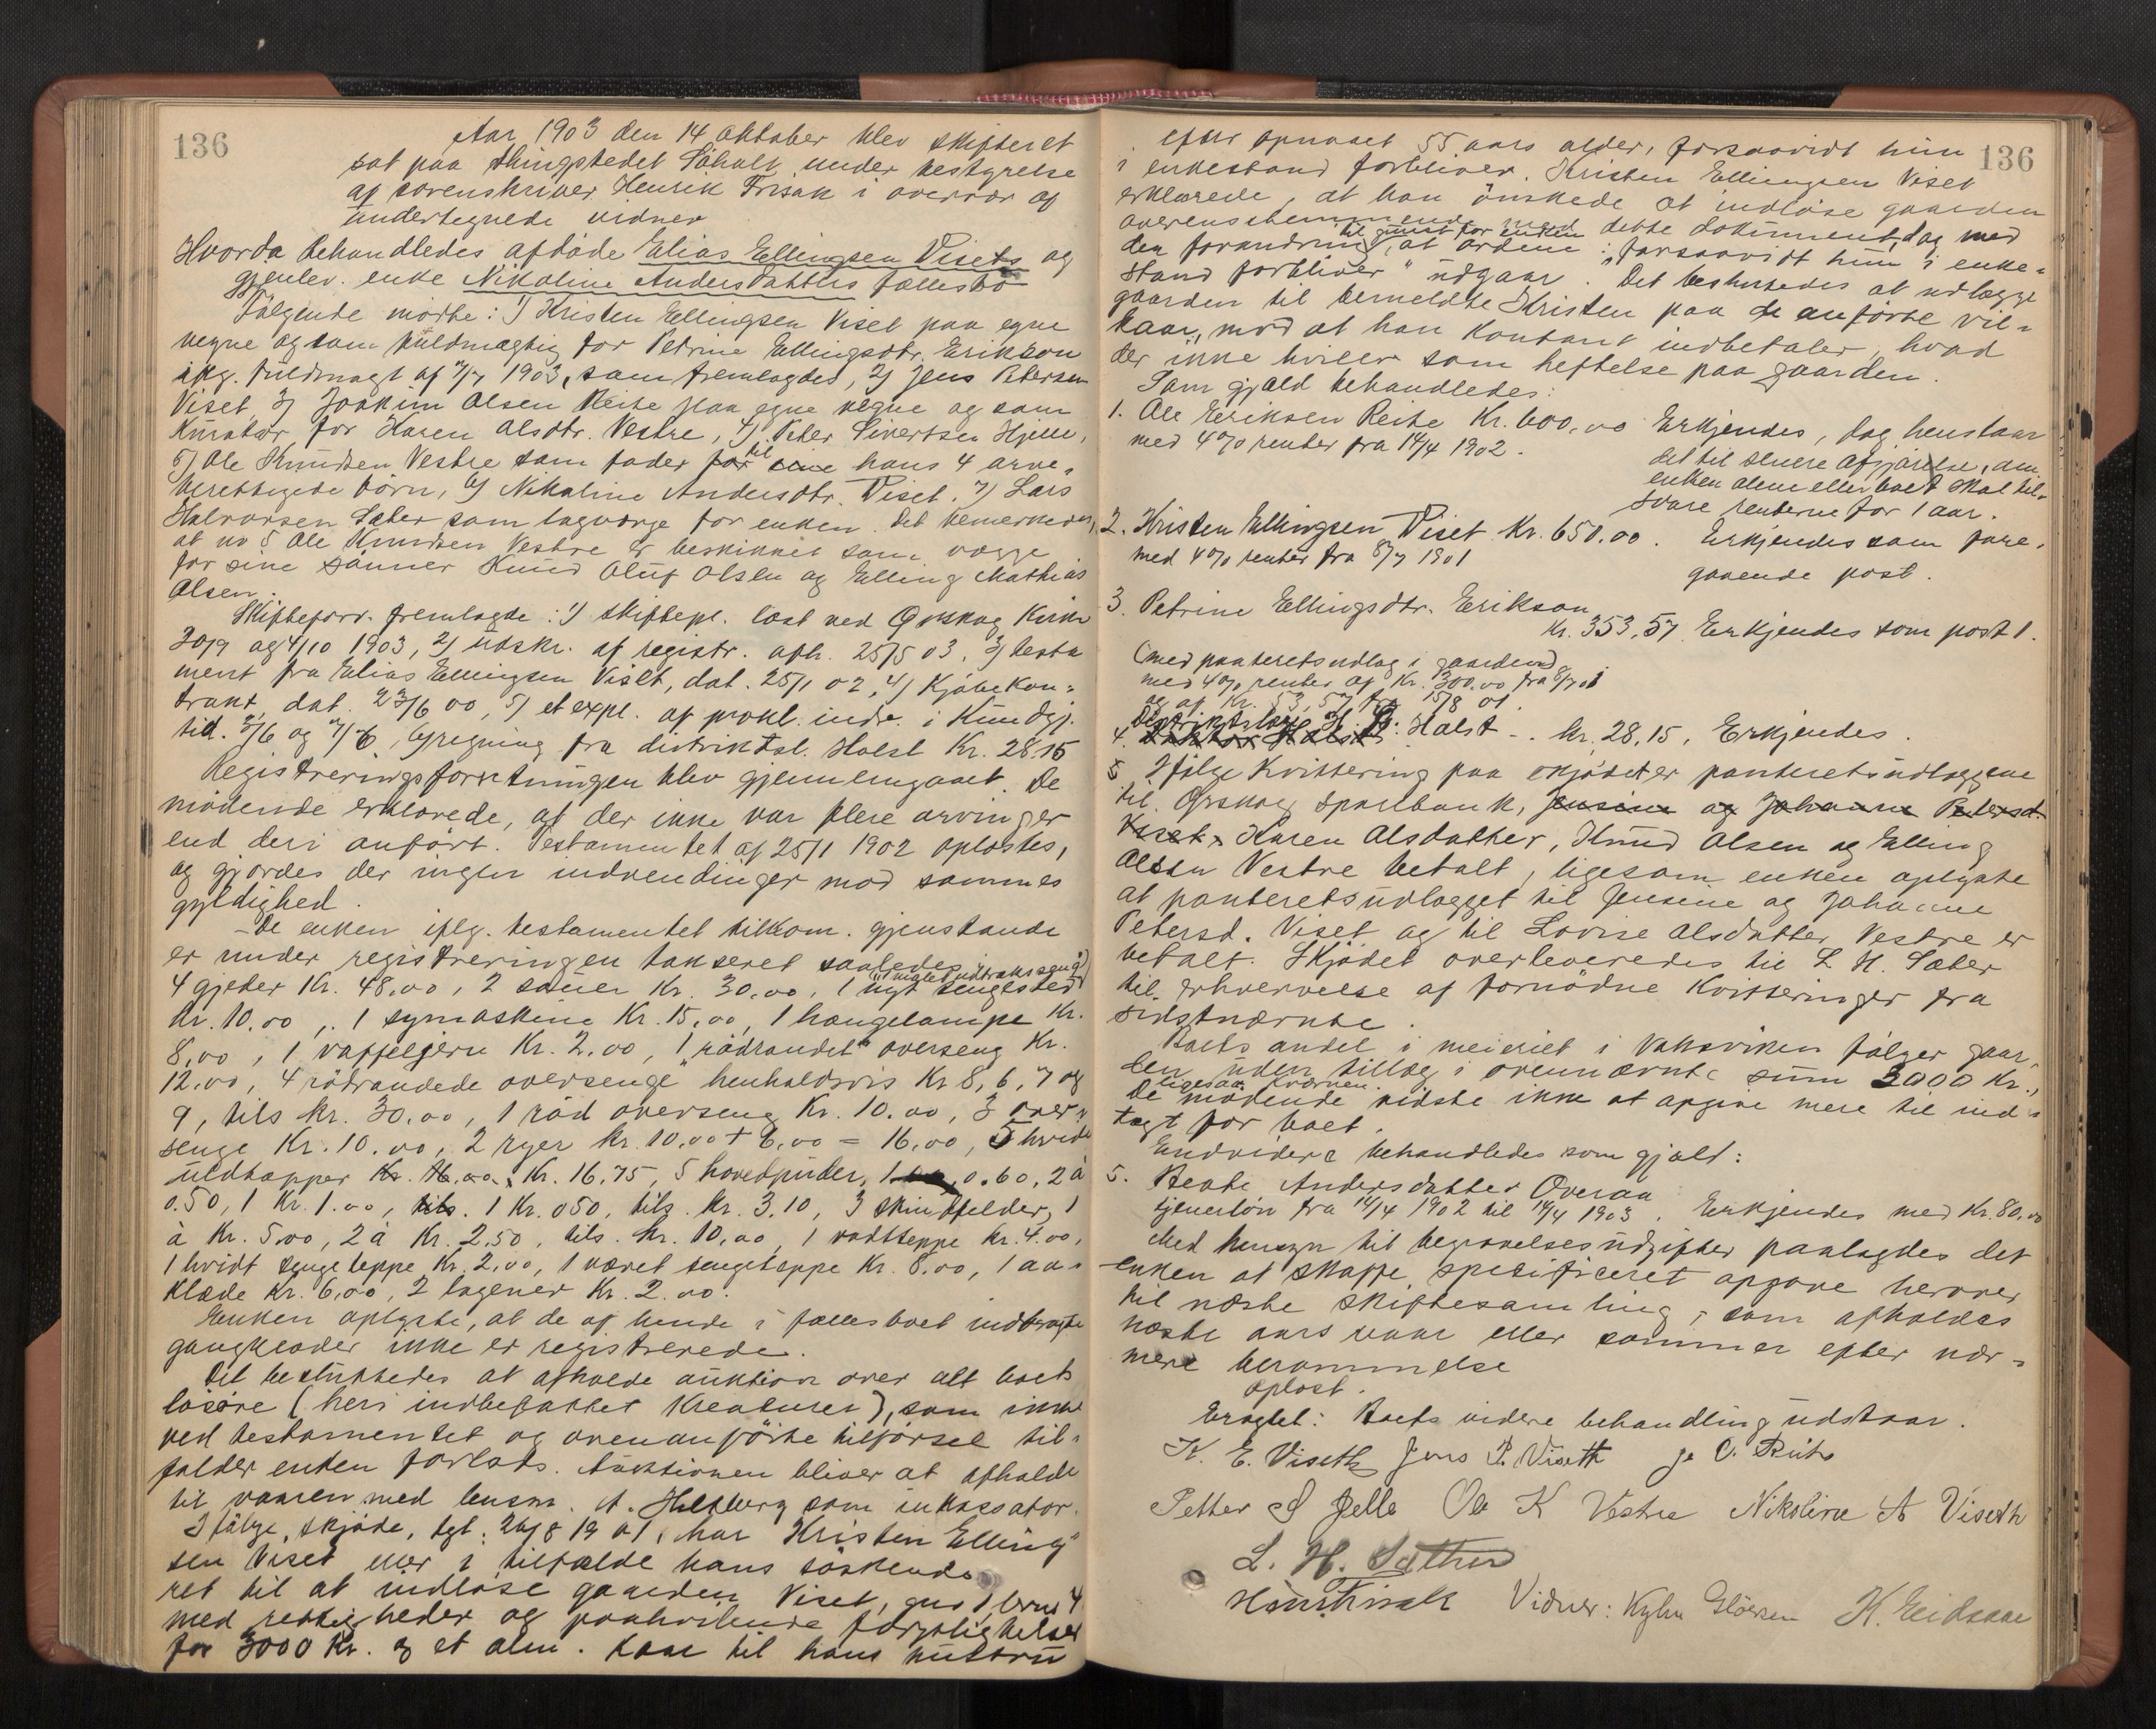 136
Aar 1903 den 14 oktober blev skifteret
sat paa thingstedet Söholt under bestyrelse
af sorenskriver Henrik Frisak i overvær af
undertegnede vidner
Hvorda behandledes afdöde Elias Ellingsen Visets og
gjenlev. enke Nikoline Andersdatters fællesbo
Fölgende mödte: 1) Kristen Ellingsen Viset paa egne
vegne og som fuldmægtig for Petrine Ellingsdtr. Erikson
iflg. fuldmagt af 7/7 1903, som fremlagdes, 2) Jens Petersen
Viset, 3) Joakim Olsen Reite paa egne vegne og som
Kurator for Karen Olsdtr. Vestre, 4) Peter Sivertsen Hjelle,
5) Ole Knudsen Vestre som fader for til sine hans 4 arve-
berettigede börn, 6) Nikoline Andersdtr. Viset. 7) Lars
Halvorsen Sæter som lagværge for enken. Det bemerkedes,
at no 5 Ole Knudsen Vestre er beskikket som værge
for sine sönner Knud Oluf Olsen og Elling Mathias
Olsen.
Skifteforv. fremlagde: 1) skiftepl. læst ved Örskog Kirke
20/9 og 4/10 1903, 2) udskr. af registr. afh. 25/5 03, 3) testa
ment fra Elias Ellingsen Viset, dat. 25/1 02, 4) Kjöbekon-
trakt dat. 23/6 00, 5) et expl. af prokl. indr. i Kundgj.
tid. 2/6 og 7/6, 6) regning fra distriktsl. Holst Kr. 28.15
Registreringsforretningen blev gjennemgaaet. De
mödende erklærede, at der ikke var flere arvinger
end deri anfört. Testamentet af 25/1 1902 oplæstes,
og gjordes der ingen indvendinger mod sammes
gyldighed.
De enken iflg. testamentet tilkom. gjenstande
er under registreringen takseret saaledes:
4 gjeder Kr. 48.00, 2 sauer Kr. 30.00, 1 nyt sengested
Kr. 10.00, 1 symaskine Kr. 15.00, 1 hængelampe Kr.
8.00, 1 vaffeljern Kr. 2.00, 1 "rödrandet" overseng Kr.
12.00, 4 rödrandede oversenge henholdsvis Kr 8, 6, 7 og
9, tils kr. 30.00, 1 röd overseng Kr. 10.00, 3 over-
senge Kr. 10.00, 2 ryer kr. 10.00 + 6.00 = 16.00, 5 hvide
uldtæpper Kr. 16.00, Kr. 16.75, 5 hovedpuder, 1 0.60, 2 à
0.50, 1 Kr. 1.00, tils. 1 Kr. 050, tils. Kr. 3.10, 3 skindfelder, 1
à Kr. 5.00, 2 à Kr. 2.50, tils. Kr. 10.00, 1 vadtteppe Kr. 4.00,
1 hvidt sengeteppe Kr. 2.00, 1 vævet sengeteppe Kr. 8.00, 1 aa-
klæde Kr. 6.00, 2 lagener Kr. 2.00.
Enken oplyste, at de af hende i fællesboet indbragte
gangklæder ikke er registrerede.
Det besluttedes at afholde auktion over alt boets
lösöre (heri indbefattet kreaturer), som ikke
ved testamentet og ovenanförte tilförsel til-
falder enken forlods. Auktionen bliver at afholde
til vaaren med lensm. A. Hellberg som inkassator.
Ifölge skjöde, tgl. 26/8 1901, har Kristen Elling-
sen Viset eller i tilfælde hans söskende
ret til at indlöse gaarden Viset, gno 1, brno 4
med rettigheder og paahvilende forpligtelser
for 3000 Kr. og et alm. kaar til hans hustru
136
efter opnaaet 55 aars alder, forsaavidt hun
i enkestand forbliver. Kristen Ellingsen Viset
erklærede, at han önskede at indlöse gaarden
overensstemmende med dette dokument, dog med
den forandring til gunst for enken, at ordene: "forsaavidt hun i enke-
stand forbliver" udgaar. Det besluttedes at udlægge
gaarden til bemeldte Kristen paa de anförte vil-
kaar, mod at han kontant indbetaler, hvad
der ikke hviler som heftelse paa gaarden.
Som gjæld behandledes:
1. Ole Eriksen Reite Kr. 600.00 Erkjendes, dog henstaar
med 4% renter fra 14/4 1902.
det til senere afgjörelse, om
enken alene eller boet skal til-
svare renterne for 1 aar.
2. Kristen Ellingsen Viset Kr. 650.00. Erkjendes som fore-
med 4% renter fra 8/7 1901
gaaende post.
3. Petrine Ellingsdtr. Erikson
Kr. 353,57. Erkjendes som post 1.
(med panteretsudlæg i gaarden)
med 4% renter af Kr. 300.00 fra 8/7 01
og af Kr. 53,57 fra 15/8 01.
4. Distriktslæge H. B. Holst - . kr. 28,15. Erkjendes.
5 Ifölge kvittering paa skjödet er panteretsudlæggene
til Örskog Sparebank, Jensine og Johanne Petersd.
Viset, Karen Olsdatter, Knud Olsen og Elling
Olsen Vestre betalt, ligesom enken oplyste
at panteretsudlægget til Jensine og Johanne
Petersd. Viset og til Lovise Olsdatter Vestre er
betalt. Skjödet overleveredes til L H. Sæter
til erhvervelse af fornödne kvitteringer fra
sidstnævnte.
Boets andel i meieriet i Vaksviken fölger gaar-
den uden tillæg i ovennævnte sum 3000 Kr.,
ligesaa kværnen.
De mödende vidste ikke at opgive mere til ind-
tægt for boet.
Endvidere behandledes som gjæld:
5. Beate Andersdatter Overaa
tjenerlön fra 14/4 1902 til 14/4 1903. Erkjendes med Kr. 80.00
Med hensyn til begravelsesudgifter paalagdes det
enken at skaffe spesificeret opgave herover
til næste skiftesamling, som afholdes
næste aars vaar eller sommer efter nær-
mere berammelse
oplæst.
Eragtet: Boets videre behandling udstaar.
K. E. Viseth Jens P. Viseth J. O. Reite
Petter S Jelle Ole K Vestre Nikoline A Viseth
L. H. Sæther
Henr. Frisak Vidner: H. Eidsaae